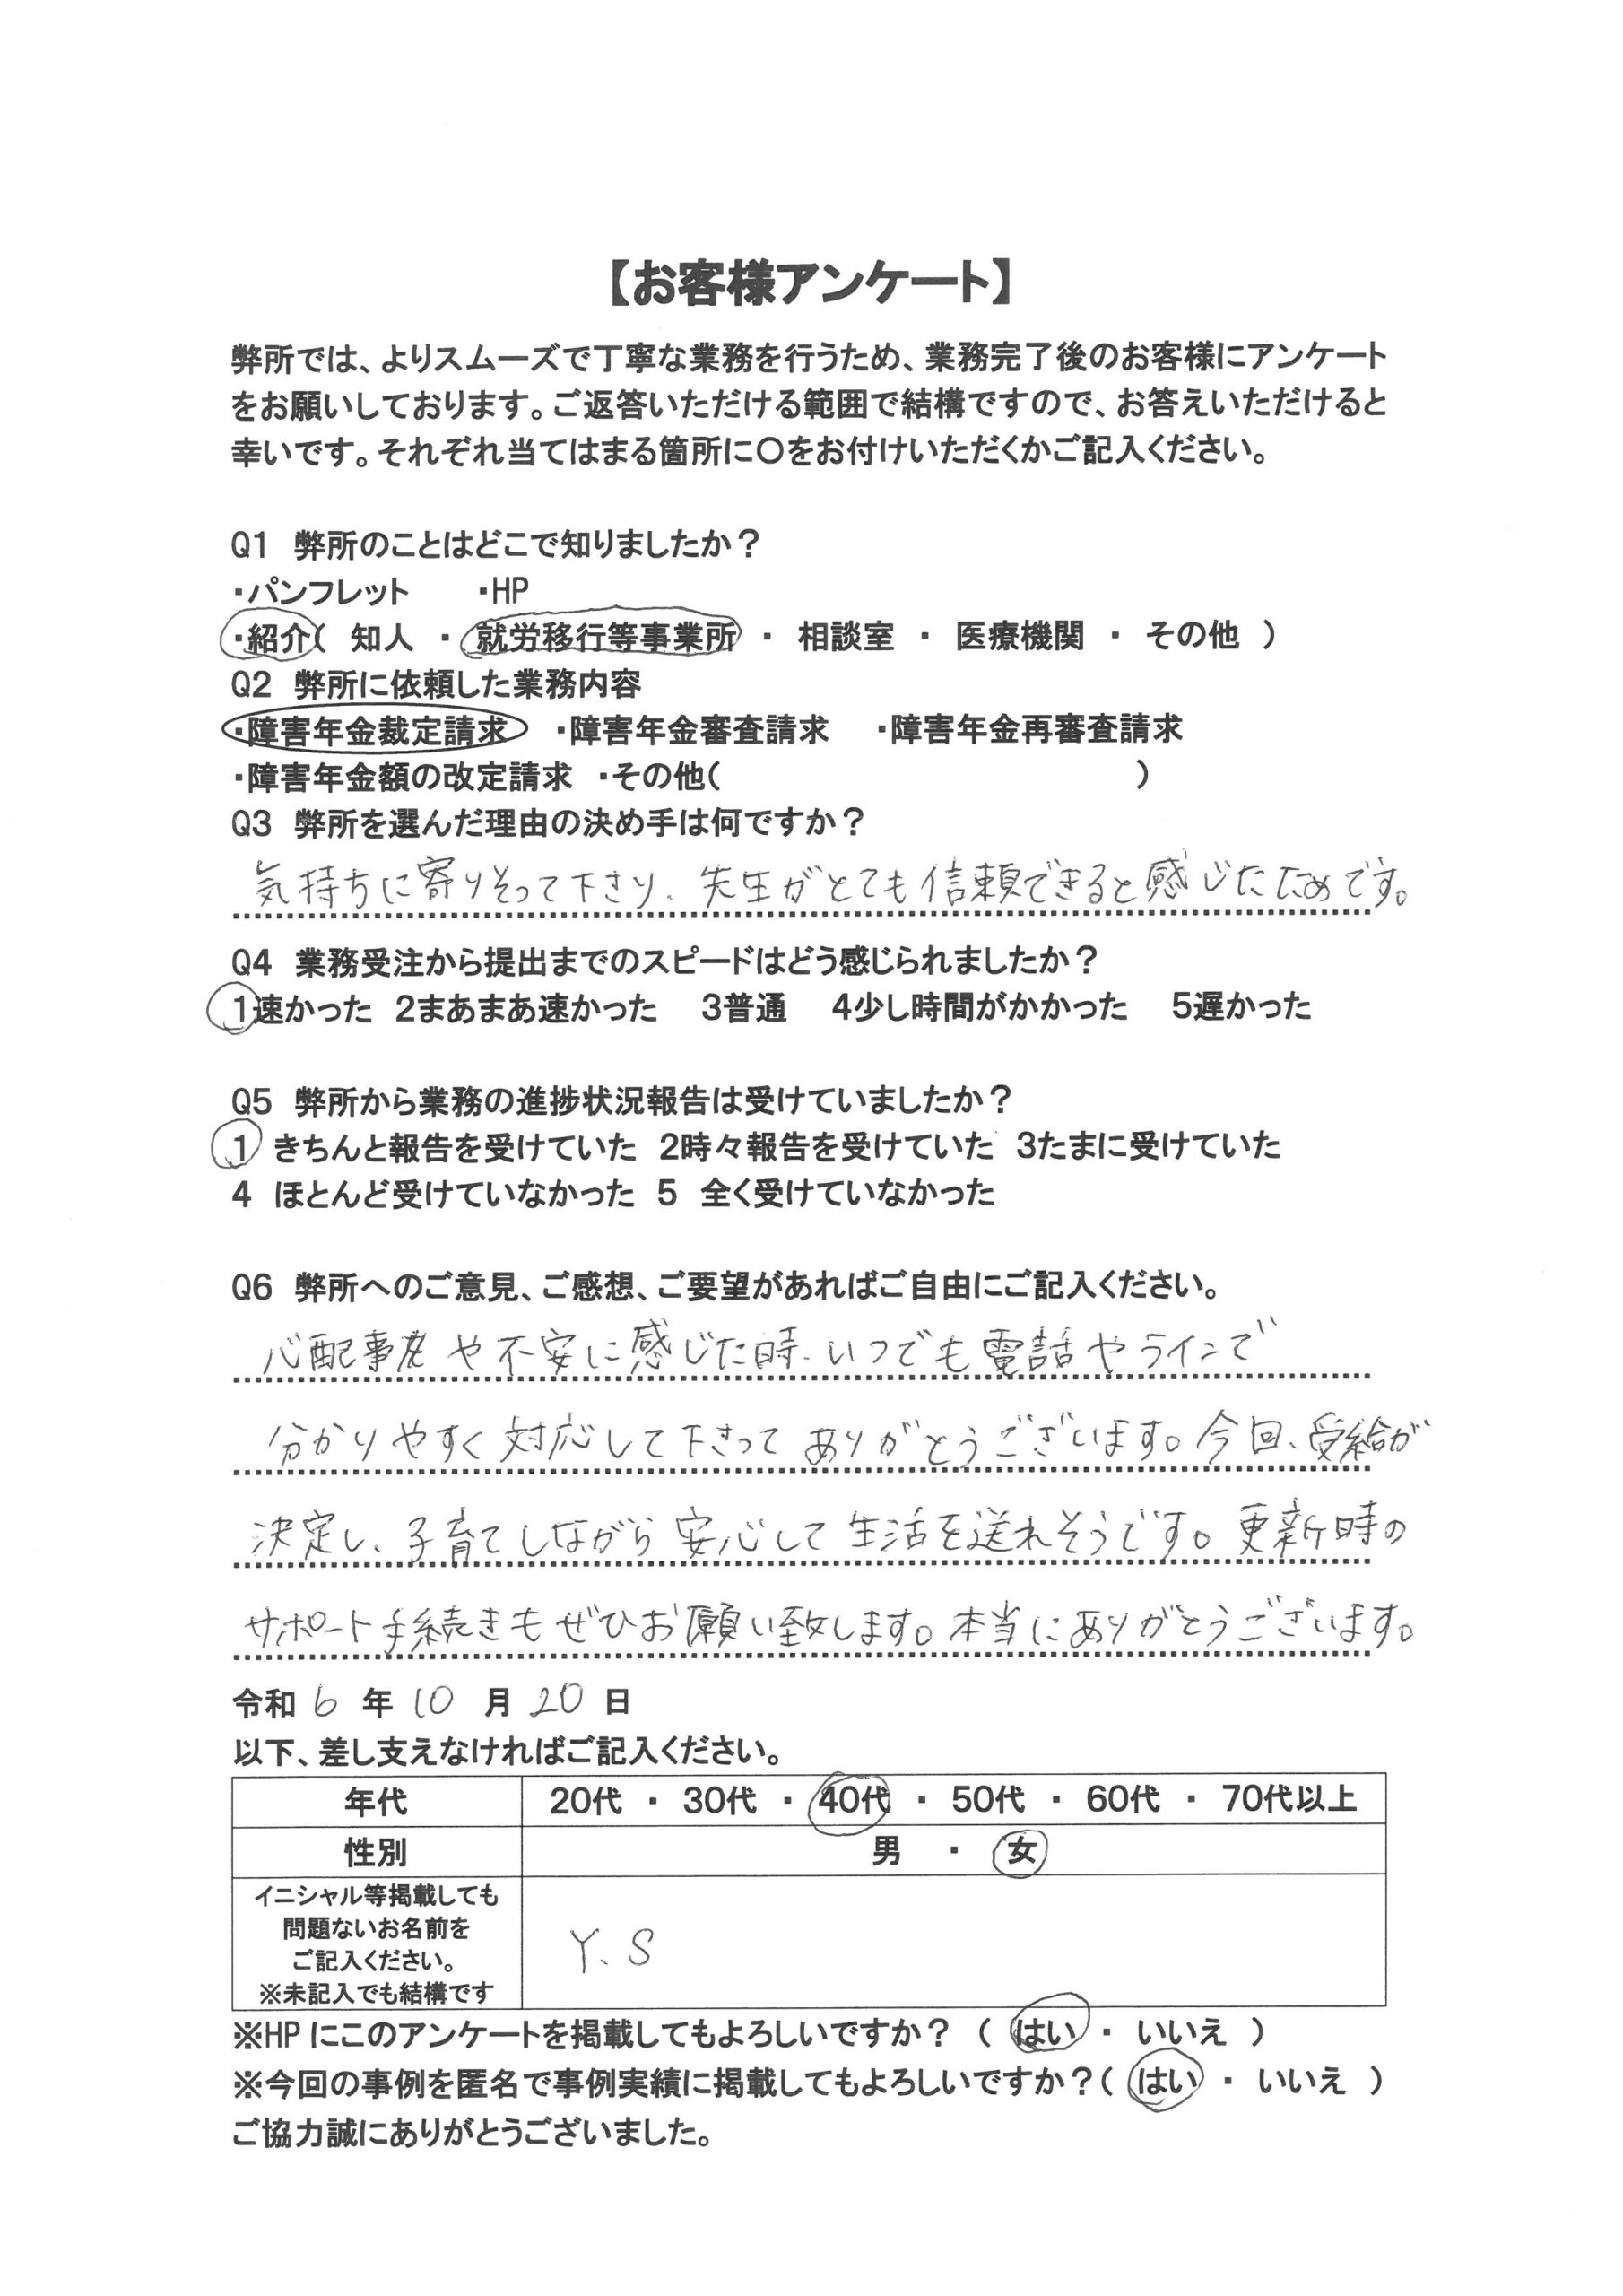 【お客様アンケート】
弊所では、よりスムーズで丁寧な業務を行うため、業務完了後のお客様にアンケート
をお願いしております。ご返答いただける範囲で結構ですので、お答えいただけると
幸いです。それぞれ当てはまる箇所に〇をお付けいただくかご記入ください。
Q1 弊所のことはどこで知りましたか？
・パンフレット ・HP
・紹介( 知人 ・ 就労移行等事業所 ・ 相談室 ・ 医療機関 ・ その他 )
Q2 弊所に依頼した業務内容
・障害年金裁定請求 ・障害年金審査請求 ・障害年金再審査請求
・障害年金額の改定請求 ・その他( )
Q3 弊所を選んだ理由の決め手は何ですか？
気持ちに寄りそって下さり、先生がとても信頼できると感じたためです。
Q4 業務受注から提出までのスピードはどう感じられましたか？
1速かった 2まあまあ速かった 3普通 4少し時間がかかった 5遅かった
Q5 弊所から業務の進捗状況報告は受けていましたか？
1 きちんと報告を受けていた 2時々報告を受けていた 3たまに受けていた
4 ほとんど受けていなかった 5 全く受けていなかった
Q6 弊所へのご意見、ご感想、ご要望があればご自由にご記入ください。
心配事や不安に感じた時、いつでも電話やラインで
分かりやすく対応して下さってありがとうございます。今回、受給が
決定し、子育てしながら安心して生活を送れそうです。更新時の
サポート手続きもぜひお願い致します。本当にありがとうございます。
令和 6 年 10 月 20 日
以下、差し支えなければご記入ください。
年代 20代 ・ 30代 ・ 40代 ・ 50代 ・ 60代 ・ 70代以上
性別 男 ・ 女
イニシャル等掲載しても
問題ないお名前を
ご記入ください。
※未記入でも結構です
Y.S
※HPにこのアンケートを掲載してもよろしいですか？ ( はい ・ いいえ )
※今回の事例を匿名で事例実績に掲載してもよろしいですか？( はい ・ いいえ )
ご協力誠にありがとうございました。